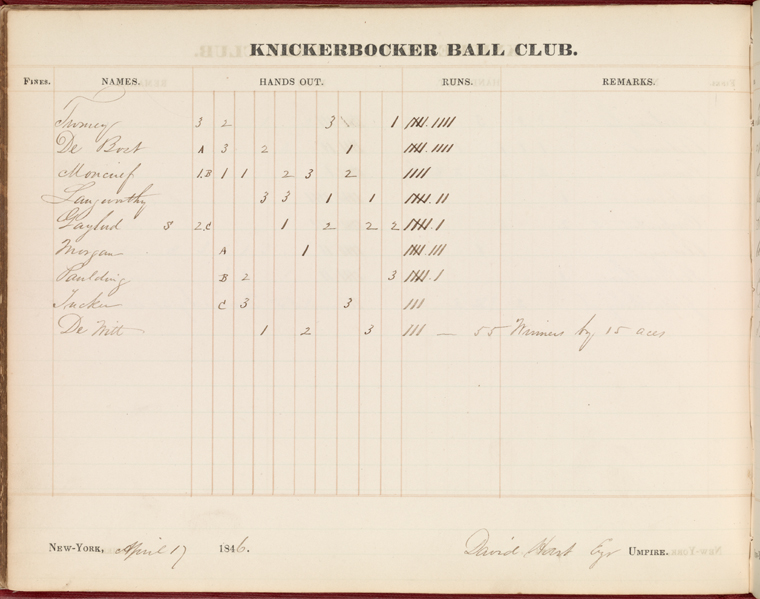 KNICKERBOCKER BALL CLUB.
FINES. NAMES. HANDS OUT. RUNS. REMARKS.
Turney 3 2 3 1 𝍸 ||||
De Bost A 3 2 1 𝍸 ||||
Moncrief 1.B 1 1 2 3 2 ||||
Langworthy 3 3 1 1 𝍸 ||
Gaylord S 2.C 1 2 2 2 𝍸 |
Morgan A 1 𝍸 |||
Paulding B 2 3 𝍸 |
Tucker C 3 3 |||
De Witt 1 2 3 ||| — 55 Winners by 15 aces
NEW-YORK, April 17 1846. David Esqr UMPIRE.